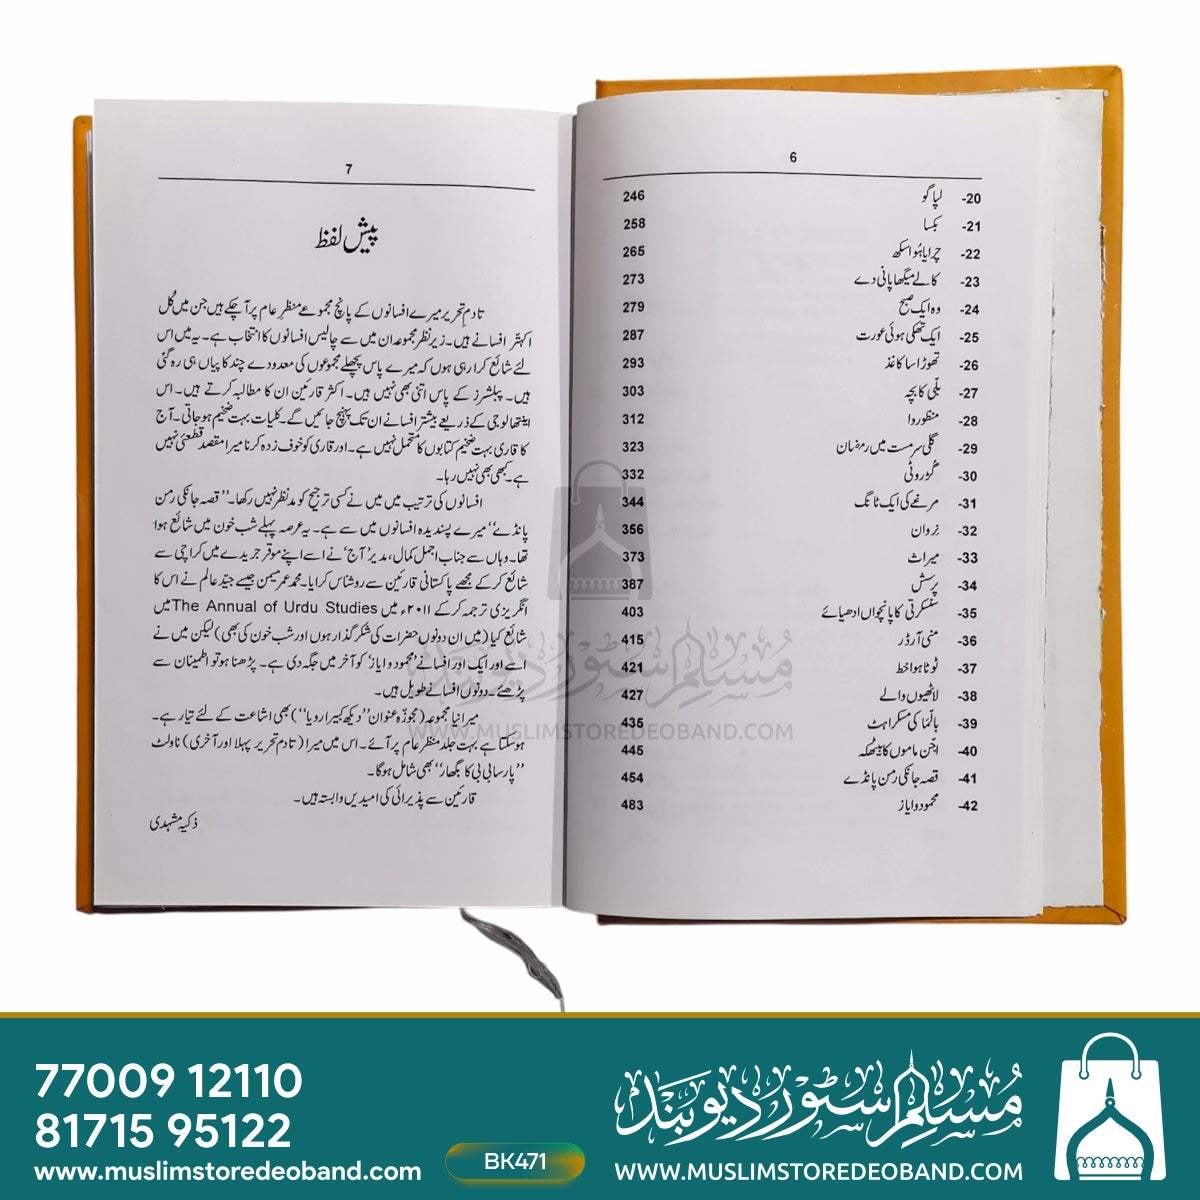 6
20- لپا گو 246
21- بکسا 258
22- چرایا ہوا سکھ 265
23- کالے میگھا پانی دے 273
24- وہ ایک صبح 279
25- ایک تھکی ہوئی عورت 287
26- تھوڑا سا کاغذ 293
27- بلّی کا بچہ 303
28- منظوروا 312
29- گلی سرمست میں رمضان 323
30- گڑ روٹی 332
31- مرغے کی ایک ٹانگ 344
32- نروان 356
33- میراث 373
34- پرسش 387
35- سنسکرتی کا پانچواں ادھیائے 403
36- منی آرڈر 415
37- ٹوٹا ہوا خط 421
38- لاٹھیوں والے 427
39- بالما کی مسکراہٹ 435
40- اچھن ماموں کا بیٹھکہ 445
41- قصہ جانکی رمن پانڈے 454
42- محمود و ایاز 483
7
پیش لفظ
تادمِ تحریر میرے افسانوں کے پانچ مجموعے منظرِ عام پر آچکے ہیں جن میں کُل
اکہتّر افسانے ہیں۔ زیر نظر مجموعہ ان میں سے چالیس افسانوں کا انتخاب ہے۔ یہ میں اس
لئے شائع کرا رہی ہوں کہ میرے پاس پچھلے مجموعوں کی معدودے چند کاپیاں ہی رہ گئی
ہیں۔ پبلشرز کے پاس اتنی بھی نہیں ہیں۔ اکثر قارئین ان کا مطالبہ کرتے ہیں۔ اس
اینتھالوجی کے ذریعے بیشتر افسانے ان تک پہنچ جائیں گے۔ کلیات بہت ضخیم ہو جاتی۔ آج
کا قاری بہت ضخیم کتابوں کا متحمل نہیں ہے۔ اور قاری کو خوف زدہ کرنا میرا مقصد قطعئی نہیں
ہے۔ کبھی بھی نہیں رہا۔
افسانوں کی ترتیب میں میں نے کسی ترجیح کو مدِ نظر نہیں رکھا۔ ”قصہ جانکی رمن
پانڈے“ میرے پسندیدہ افسانوں میں سے ہے۔ یہ عرصہ پہلے شب خون میں شائع ہوا
تھا۔ وہاں سے جناب اجمل کمال، مدیر ’آج‘ نے اسے اپنے موقر جریدے میں کراچی سے
شائع کرکے مجھے پاکستانی قارئین سے روشناس کرایا۔ محمد عمر میمن جیسے جیّد عالم نے اس کا
انگریزی ترجمہ کرکے ۲۰۱۱ء میں The Annual of Urdu Studies میں
شائع کیا (میں ان دونوں حضرات کی شکر گذار ہوں اور شب خون کی بھی) لیکن میں نے
اسے اور ایک اور افسانے ’محمود و ایاز‘ کو آخر میں جگہ دی ہے۔ پڑھنا ہو تو اطمینان سے
پڑھئے۔ دونوں افسانے طویل ہیں۔
میرا نیا مجموعہ (مجوزّہ عنوان ”دیکھ کبیرا رویا“) بھی اشاعت کے لئے تیار ہے۔
ہو سکتا ہے بہت جلد منظرِ عام پر آئے۔ اس میں میرا (تادمِ تحریر پہلا اور آخری) ناولٹ
”پارسا بی بی کا بگھار“ بھی شامل ہوگا۔
قارئین سے پذیرائی کی امیدیں وابستہ ہیں۔
ذکیہ مشہدی
مسلم سٹور دیوبند
WWW.MUSLIMSTOREDEOBAND.COM
77009 12110
81715 95122
www.muslimstoredeoband.com
BK471
مسلم سٹور دیوبند
WWW.MUSLIMSTOREDEOBAND.COM